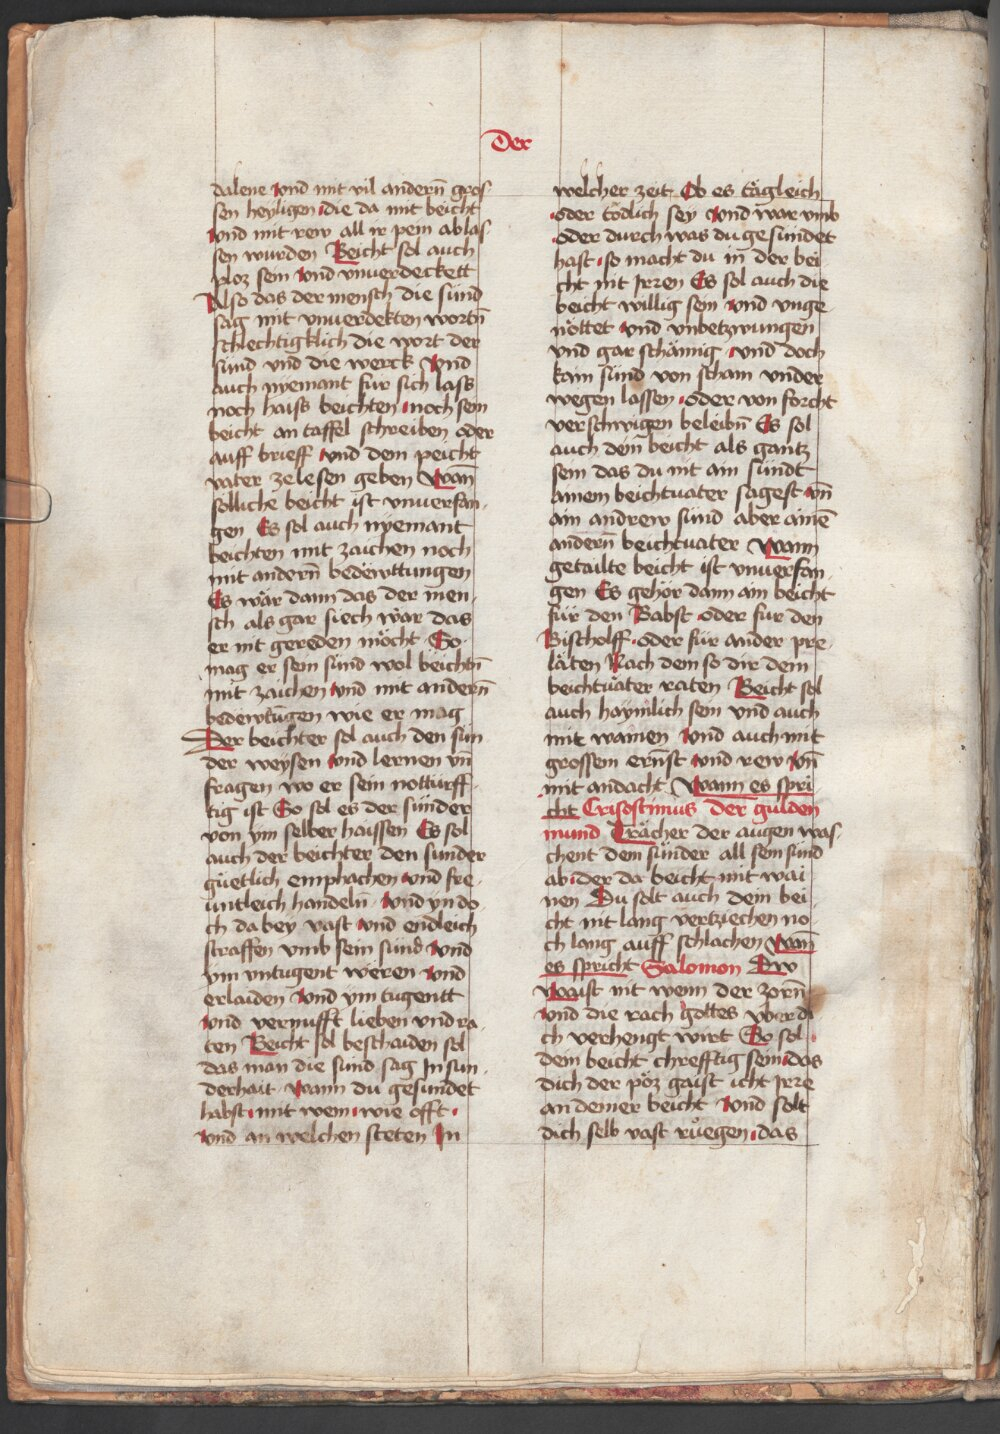 Der
dalene vnd mit vil andern̄ gros
sen heyligen die da mit beicht
vnd mit rew all ir pein ablas
sen wurden Beicht sol auch
ploz sein vnd vnuerdeckett
Also das der mensch die sünd
sag mit vnuerdekten wortn̄
schlechtigklich die wort der
sünd vnd die werck Vnd
auch nyemant fur sich lass
noch haiss beichten noch sein
beicht an taffel schreiben oder
auff brieff vnd dem peicht
vater ze lesen geben Wan̄
solliche beicht ist vnuerfan
gen Es sol auch nyemant
beichten mit zaichen noch
mit andern̄ bedëwttungen
Es wär dann das der men
sch als gar siech wär das
er nit gereden möcht So
mag er sein sünd wol beichtn̄
mit zaichen vnd mit andern̄
bedewtūgen wie er mag
Der beichter sol auch den sün
der weysen vnd lernen vn̄
fragen wo er sein notturff
tig ist So sol es der sünder
von ym selber haissen Es sol
auch der beichter den sunder
güetlich emphachen vnd fre
untleich handeln̄ vnd yn do
ch da bey vast vnd endleich
straffen vmb sein sünd vnd
ym vntugent weren vnd
erlaiden vnd ym tugentt
vnd vernufft lieben vnd ra
ten Beicht sol beschaiden sol
das man die sünd sag Jn sun
derhait wann du gesundet
habst mit wem wie offt
vnd an welchen steten Jn
welcher zeit Ob es tägleich
oder tödlich sey vnd war vmb
oder durch was du gesündet
hast so macht du in der bei
cht nit Jrren Es sol auch die
beicht willig sein vnd vnge
nöttet vnd vnbetzwungen
vnd gar schämig vnd doch
kain sünd von scham vnder
wegen lassen oder von forcht
verschwigen beleibn̄ Es sol
auch dein̄ beicht als gantz
sein das du nit ain sündt
ainem beichtuater sagest vn̄
ain andrew sünd aber ainē
andern̄ beichtuater Wann
getailte beicht ist vnuerfan
gen Es gehör dann ain beicht
für den Babst oder fur den
Bischolff oder für ander pre
läten Nach dem so dir dem
beichtuäter raten Beicht sol
auch haymlich sein vnd auch
mit wainen vnd auch mit
grossem ern̄st vnd rew vn̄
mit andacht Wann es spri
cht Crisostimus Der gulden
mund Trächer der augen was
chent dem sünder all sein sünd
ab der da beicht mit wai
nen Du solt auch dein bei
cht nit lang vertziechen no
ch lang auff schlachen Wan̄
es spricht Salomon Dw
Waist nit wenn der zorn̄
vnd die rach gottes vber di
ch verhengt wirt So sol
dein beicht chrefftig sein das
dich der pöz gaist icht Jrre
an deiner beicht vnd solt
dich selb vast rüegen das